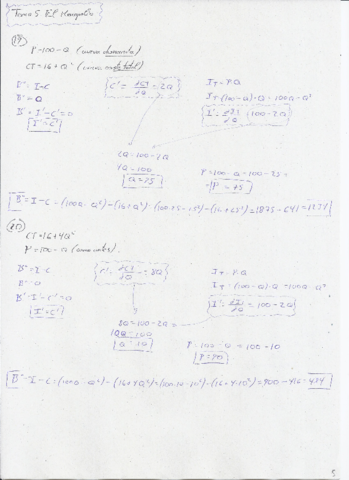 Tema 5 El Monopolio
P=100-Q (curva demanda)
CT=16+Q² (curva coste total)
B=I-C
B'=0
B'=I'-C'=0
I'=C'
C'= =2Q
I_T=P·Q
I_T=(100-Q)·Q=100Q-Q²
I'= (100-2Q)
2Q=100-2Q
4Q=100
Q=25
P=100-Q=100-25=
P=75
B=I-C=(100Q-Q²)-(16+Q²)= =1875-641=1234
CT=16+4Q²
B=I-C
B'=0
B'=I'-C'=0
I'=C'
=8Q
I_T=P·Q
I_T=(100-Q)·Q=100Q-Q²
I'= =100-2Q
8Q=100-2Q
10Q=100
Q=10
P=100-Q=100-10
P=90
B=I-C=(100Q-Q²)-(16+4Q²)=(100·10-10²)-(16+4·10²)=900-416=484
5